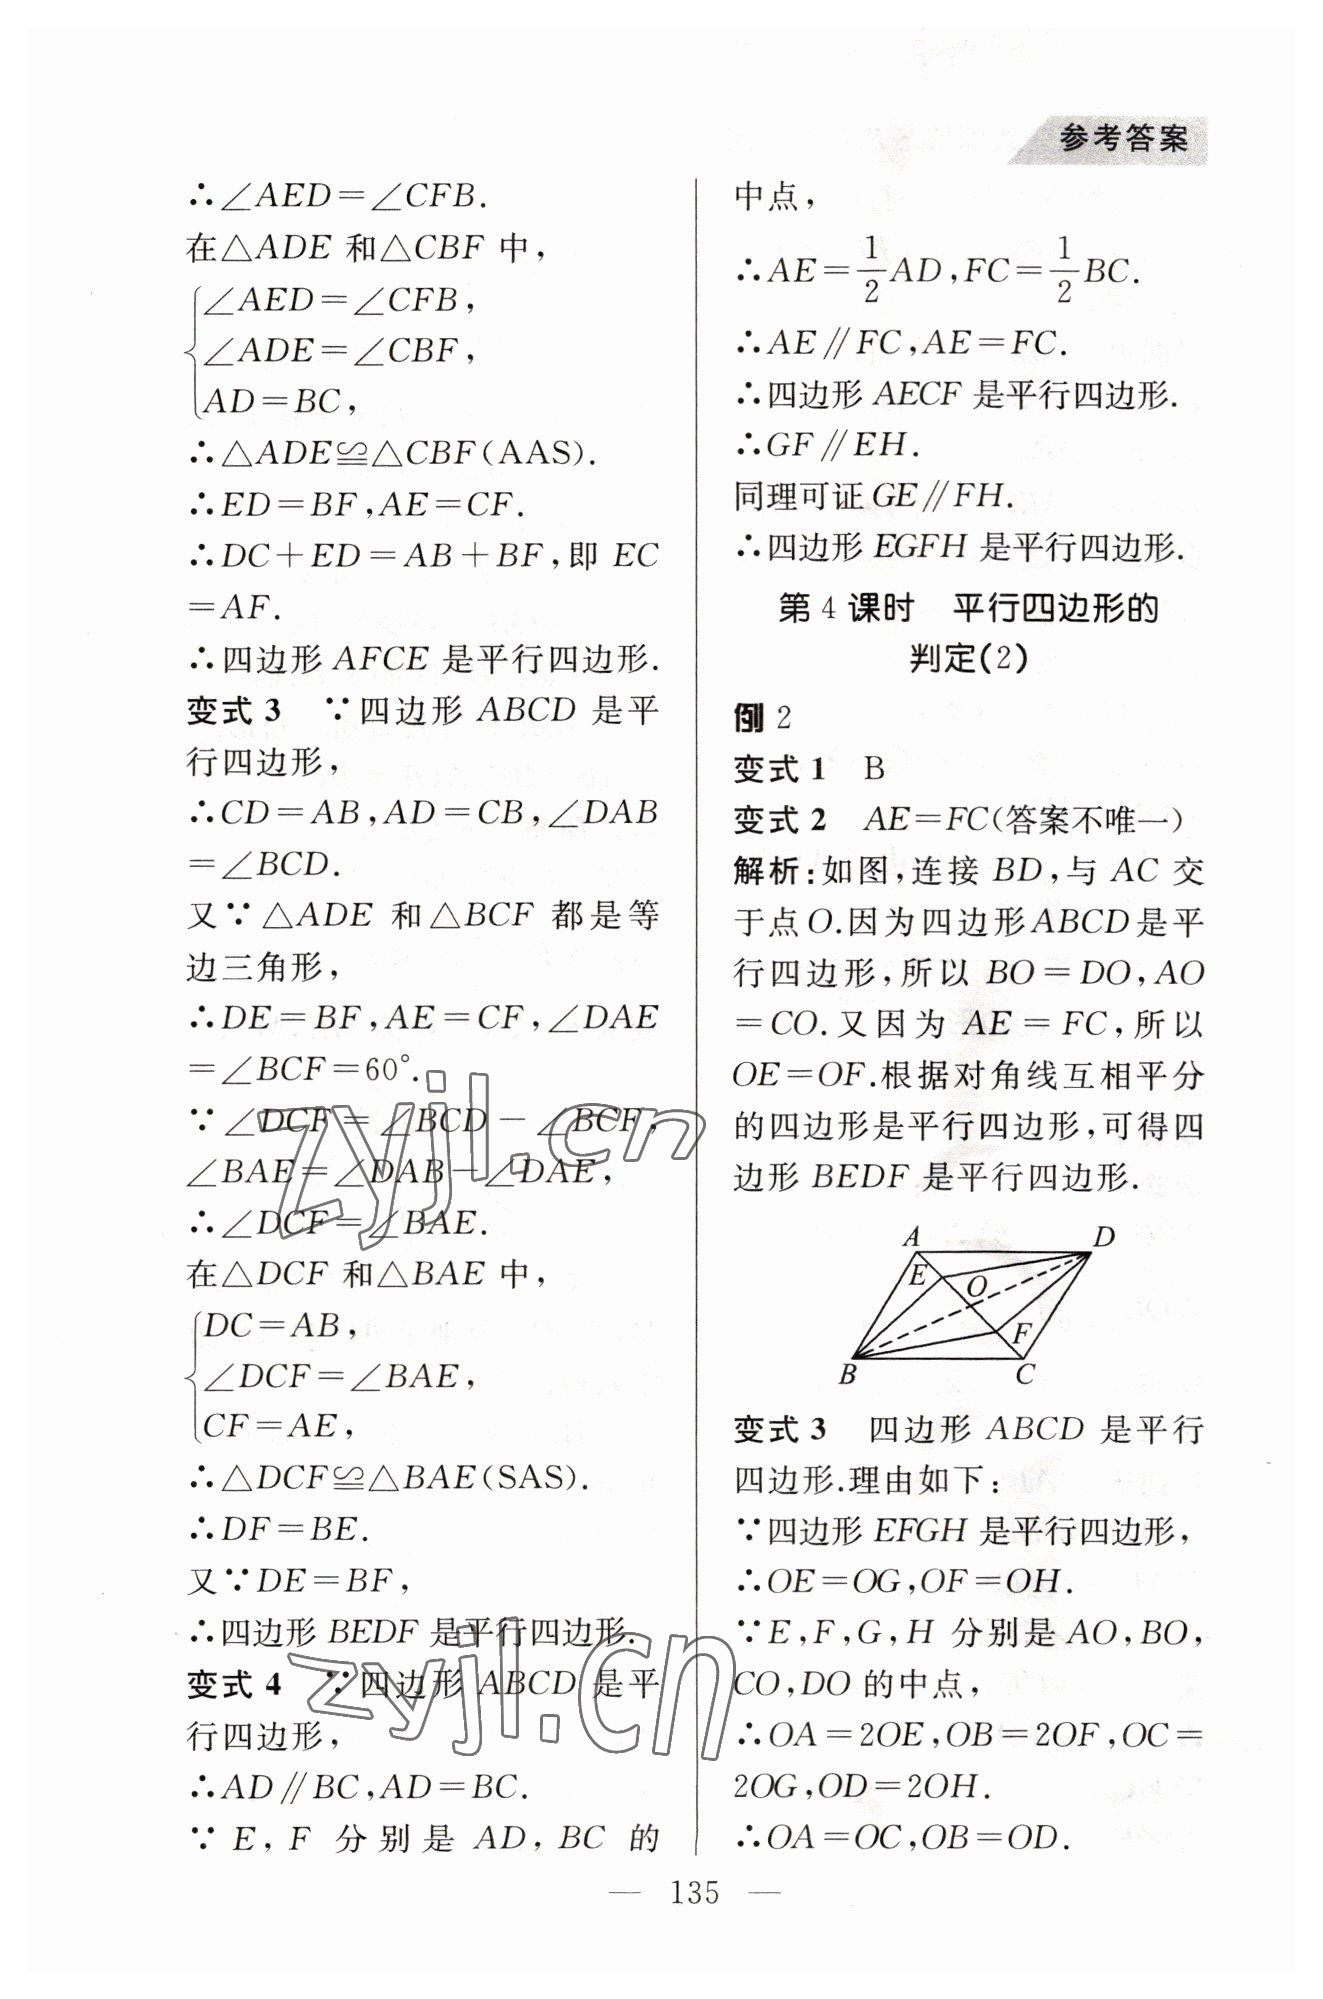 参考答案
∴∠AED=∠CFB.
在△ADE 和△CBF 中,
∠AED=∠CFB,
∠ADE=∠CBF,
AD=BC,
∴△ADE≌△CBF(AAS).
∴ED=BF,AE=CF.
∴DC+ED=AB+BF,即 EC
=AF.
∴四边形 AFCE 是平行四边形.
变式 3 ∵四边形 ABCD 是平
行四边形,
∴CD=AB,AD=CB,∠DAB
=∠BCD.
又∵△ADE 和△BCF 都是等
边三角形,
∴DE=BF,AE=CF,∠DAE
=∠BCF=60°.
∵∠DCF=∠BCD-∠BCF,
∠BAE=∠DAB-∠DAE,
∴∠DCF=∠BAE.
在△DCF 和△BAE 中,
DC=AB,
∠DCF=∠BAE,
CF=AE,
∴△DCF≌△BAE(SAS).
∴DF=BE.
又∵DE=BF,
∴四边形 BEDF 是平行四边形.
变式 4 ∵四边形 ABCD 是平
行四边形,
∴AD∥BC,AD=BC.
∵E,F 分别是 AD,BC 的
中点,
∴AE=1/2AD,FC=1/2BC.
∴AE∥FC,AE=FC.
∴四边形 AECF 是平行四边形.
∴GF∥EH.
同理可证 GE∥FH.
∴四边形 EGFH 是平行四边形.
第 4 课时 平行四边形的
判定(2)
例 2
变式 1 B
变式 2 AE=FC(答案不唯一)
解析:如图,连接 BD,与 AC 交
于点 O.因为四边形 ABCD 是平
行四边形,所以 BO=DO,AO
=CO.又因为 AE=FC,所以
OE=OF.根据对角线互相平分
的四边形是平行四边形,可得四
边形 BEDF 是平行四边形.
A D
E O
F
B C
变式 3 四边形 ABCD 是平行
四边形.理由如下:
∵四边形 EFGH 是平行四边形,
∴OE=OG,OF=OH.
∵E,F,G,H 分别是 AO,BO,
CO,DO 的中点,
∴OA=2OE,OB=2OF,OC=
2OG,OD=2OH.
∴OA=OC,OB=OD.
— 135 —
zyjl.cn
zyjl.cn